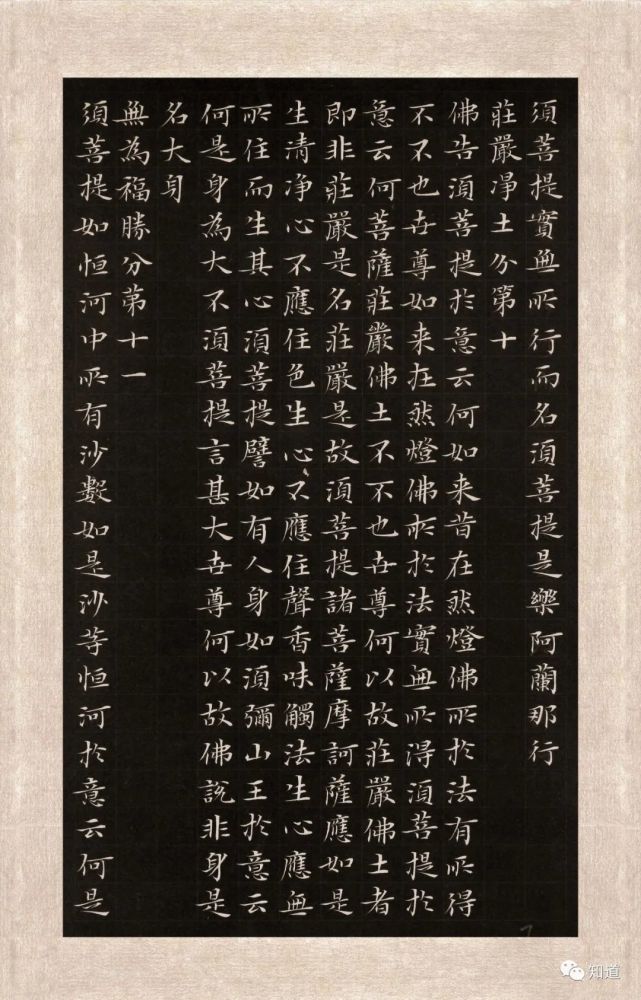 須菩提實無所行而名須菩提是樂阿蘭那行
莊嚴淨土分第十
佛告須菩提於意云何如来昔在然燈佛所於法有所得
不不也世尊如来在然燈佛所於法實無所得須菩提於
意云何菩薩莊嚴佛土不不也世尊何以故莊嚴佛土者
即非莊嚴是名莊嚴是故須菩提諸菩薩摩訶薩應如是
生清净心不應住色生心不應住聲香味觸法生心應無
所住而生其心須菩提譬如有人身如須彌山王於意云
何是身為大不須菩提言甚大世尊何以故佛說非身是
名大身
無為福勝分第十一
須菩提如恒河中所有沙數如是沙等恒河於意云何是
知道